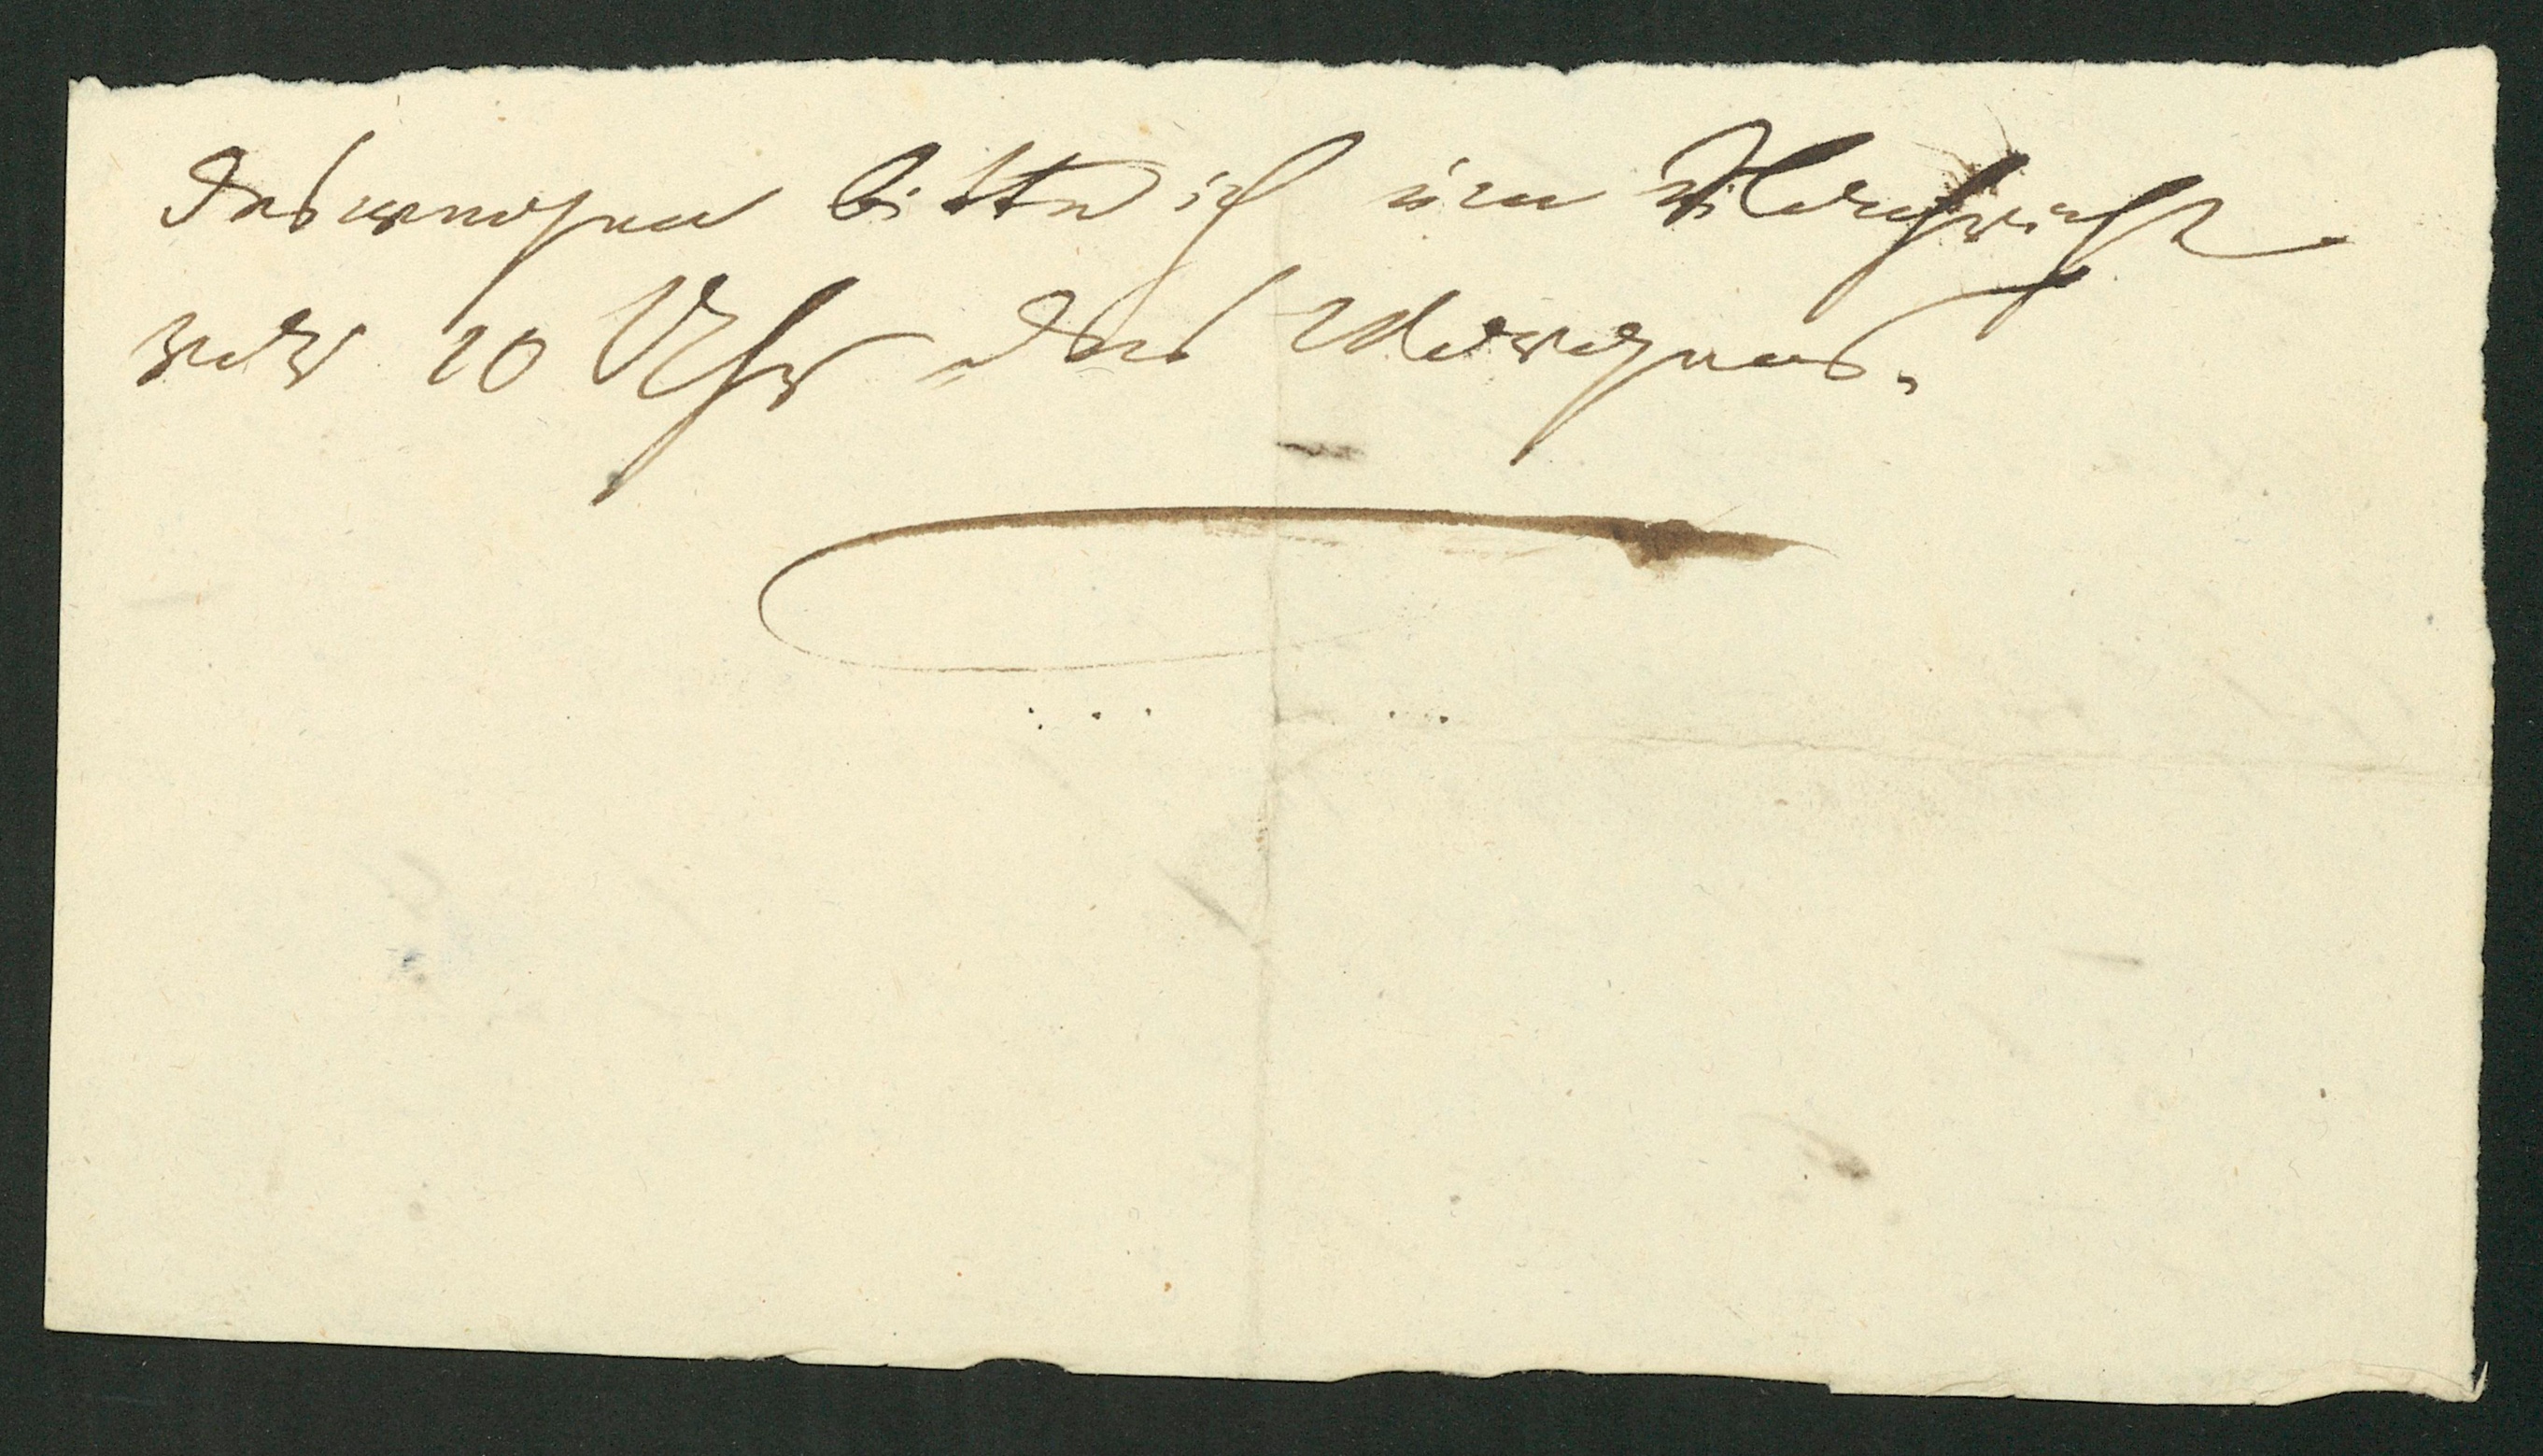 deswegen bitte ich um Nachricht
vor 10 Uhr des Morgens.